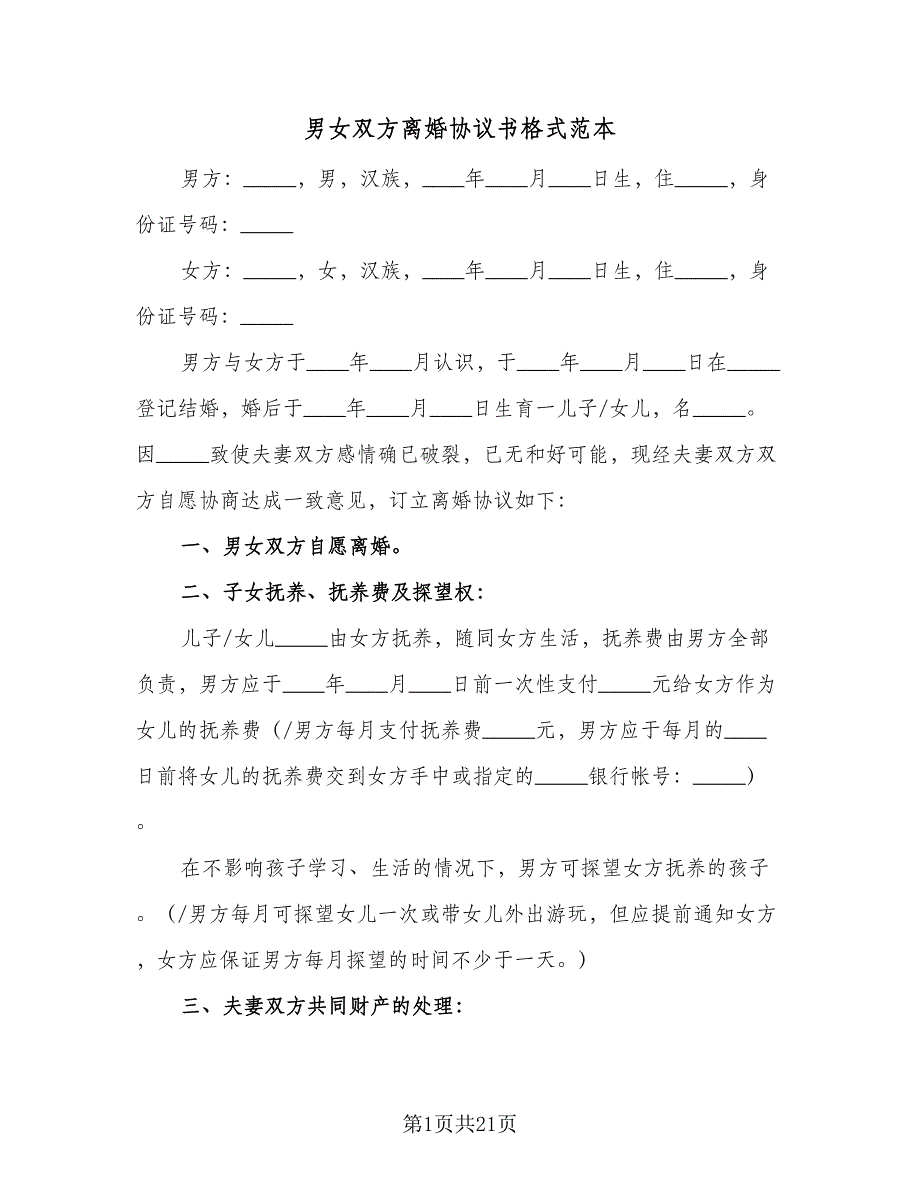 男女双方离婚协议书格式范本
男方：_____，男，汉族，____年____月____日生，住_____，身
份证号码：_____
女方：_____，女，汉族，____年____月____日生，住_____，身
份证号码：_____
男方与女方于____年____月认识，于____年____月____日在_____
登记结婚，婚后于____年____月____日生育一儿子/女儿，名_____。
因_____致使夫妻双方感情确已破裂，已无和好可能，现经夫妻双方双
方自愿协商达成一致意见，订立离婚协议如下：
一、男女双方自愿离婚。
二、子女抚养、抚养费及探望权：
儿子/女儿_____由女方抚养，随同女方生活，抚养费由男方全部
负责，男方应于____年____月____日前一次性支付_____元给女方作为
女儿的抚养费（/男方每月支付抚养费_____元，男方应于每月的____
日前将女儿的抚养费交到女方手中或指定的_____银行帐号：_____）
。
在不影响孩子学习、生活的情况下，男方可探望女方抚养的孩子
。（/男方每月可探望女儿一次或带女儿外出游玩，但应提前通知女方
，女方应保证男方每月探望的时间不少于一天。）
三、夫妻双方共同财产的处理：
第1页共21页